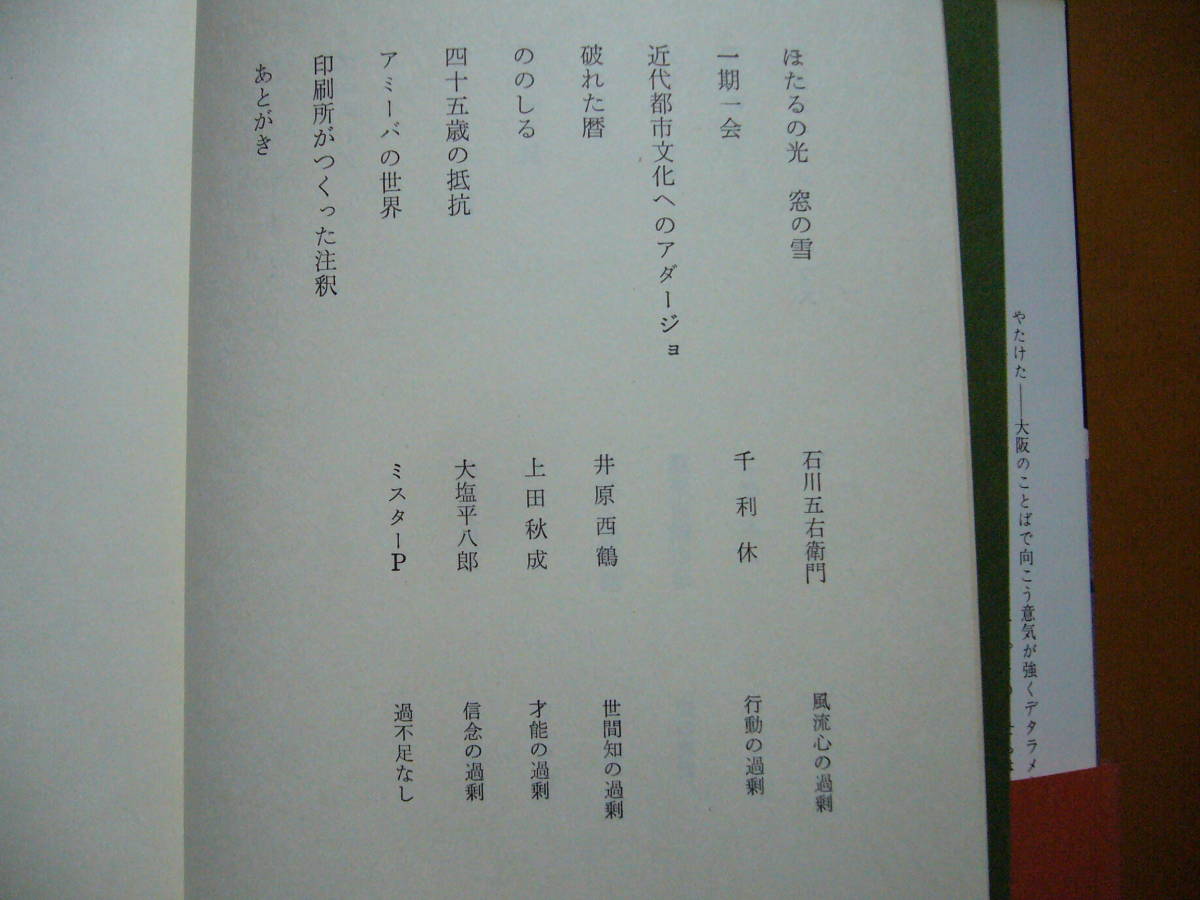 やたけた――大阪のことばで向こう意気が強くデタラメ
ほたるの光　窓の雪　石川五右衛門　風流心の過剰
一期一会　千利休　行動の過剰
近代都市文化へのアダージョ
破れた暦　井原西鶴　世間知の過剰
ののしる　上田秋成　才能の過剰
四十五歳の抵抗　大塩平八郎　信念の過剰
アミーバの世界　ミスターP　過不足なし
印刷所がつくった注釈
あとがき